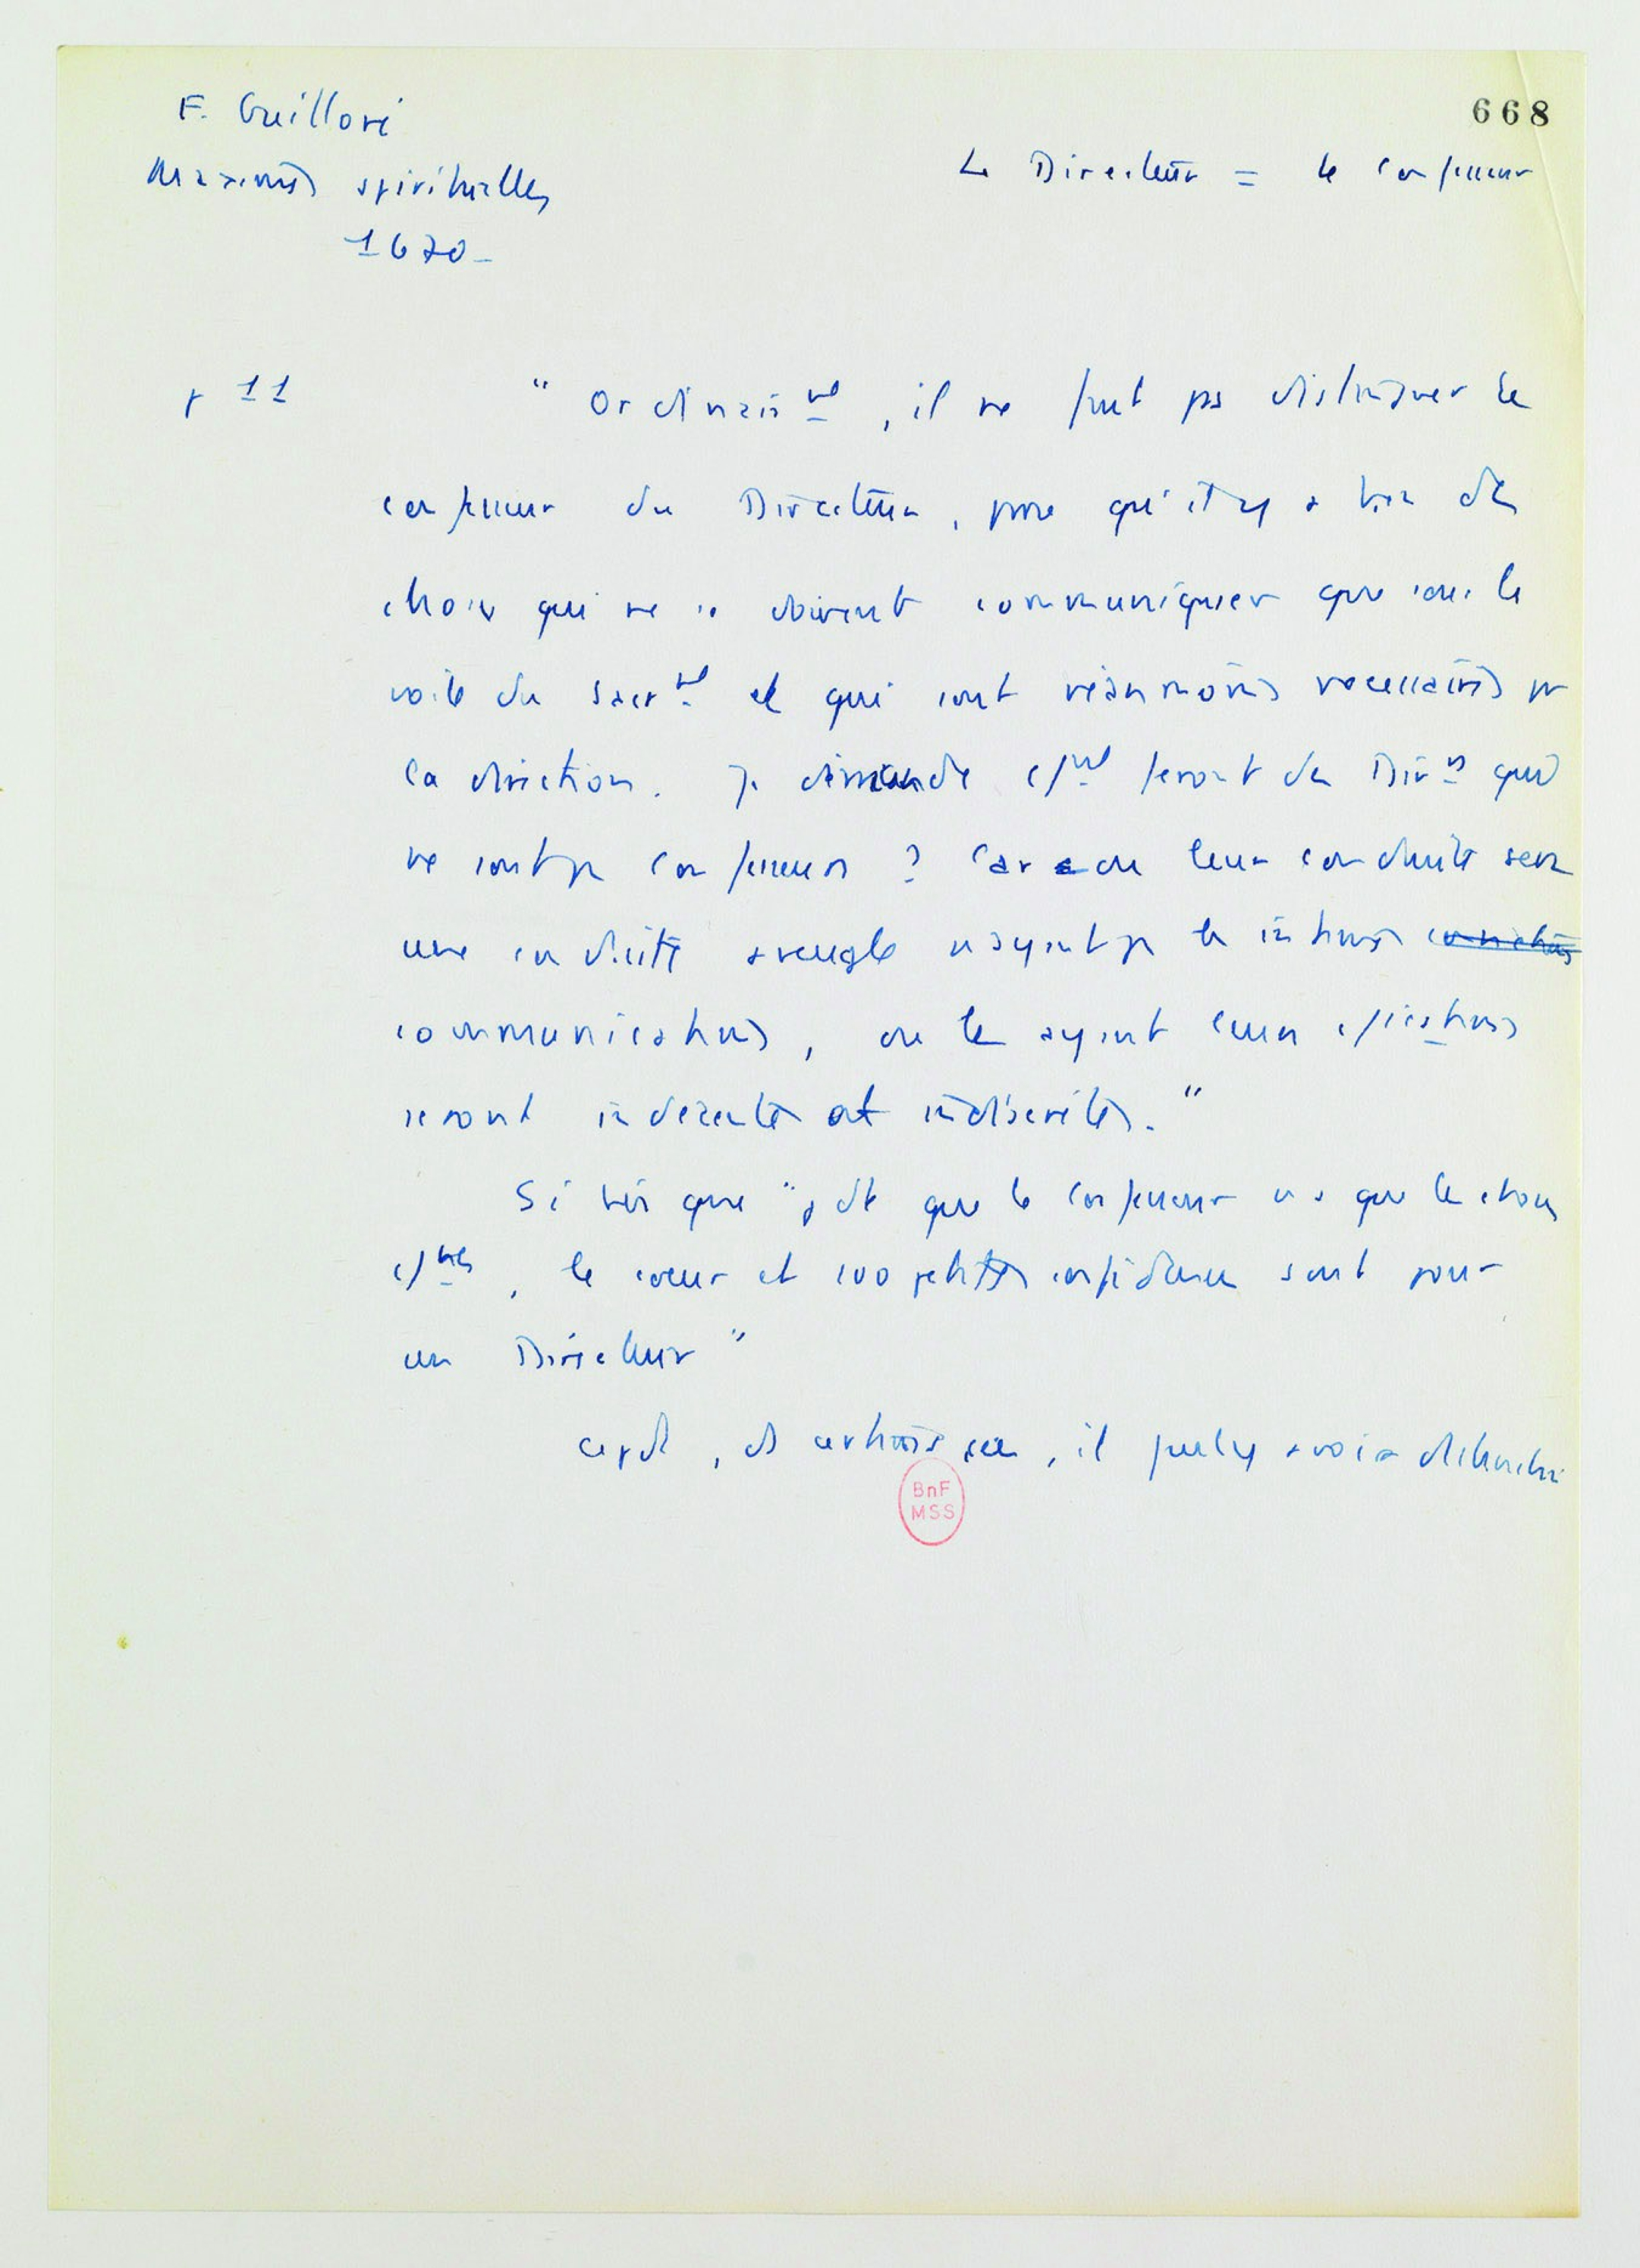 668
F. Guilloré
Maximes spirituelles
1670_
Le Directeur = le confesseur
p 11
" Ordinairᵐᵗ, il ne faut pas distinguer le
confesseur du Directeur, parce qu'il y a bien des
choses qui ne se doivent communiquer que sous le
voile du sacrᵐᵗ et qui sont néanmoins necessaires pr
la direction. Je demande feront du Dirʳˢ qui
ne sont pas confesseurs ? Car ou leur conduite sera
une conduite aveugle n'ayant pas les intimes
communications, ou les ayant leurs
seront indecentes et indiscretes. "
Si bien que " que le confesseur n'a que les choses
, le coeur et 100 petites confidences sont pour
un Directeur "
cepdt, ds certains cas, il peut y avoir distinction
BnF
MSS